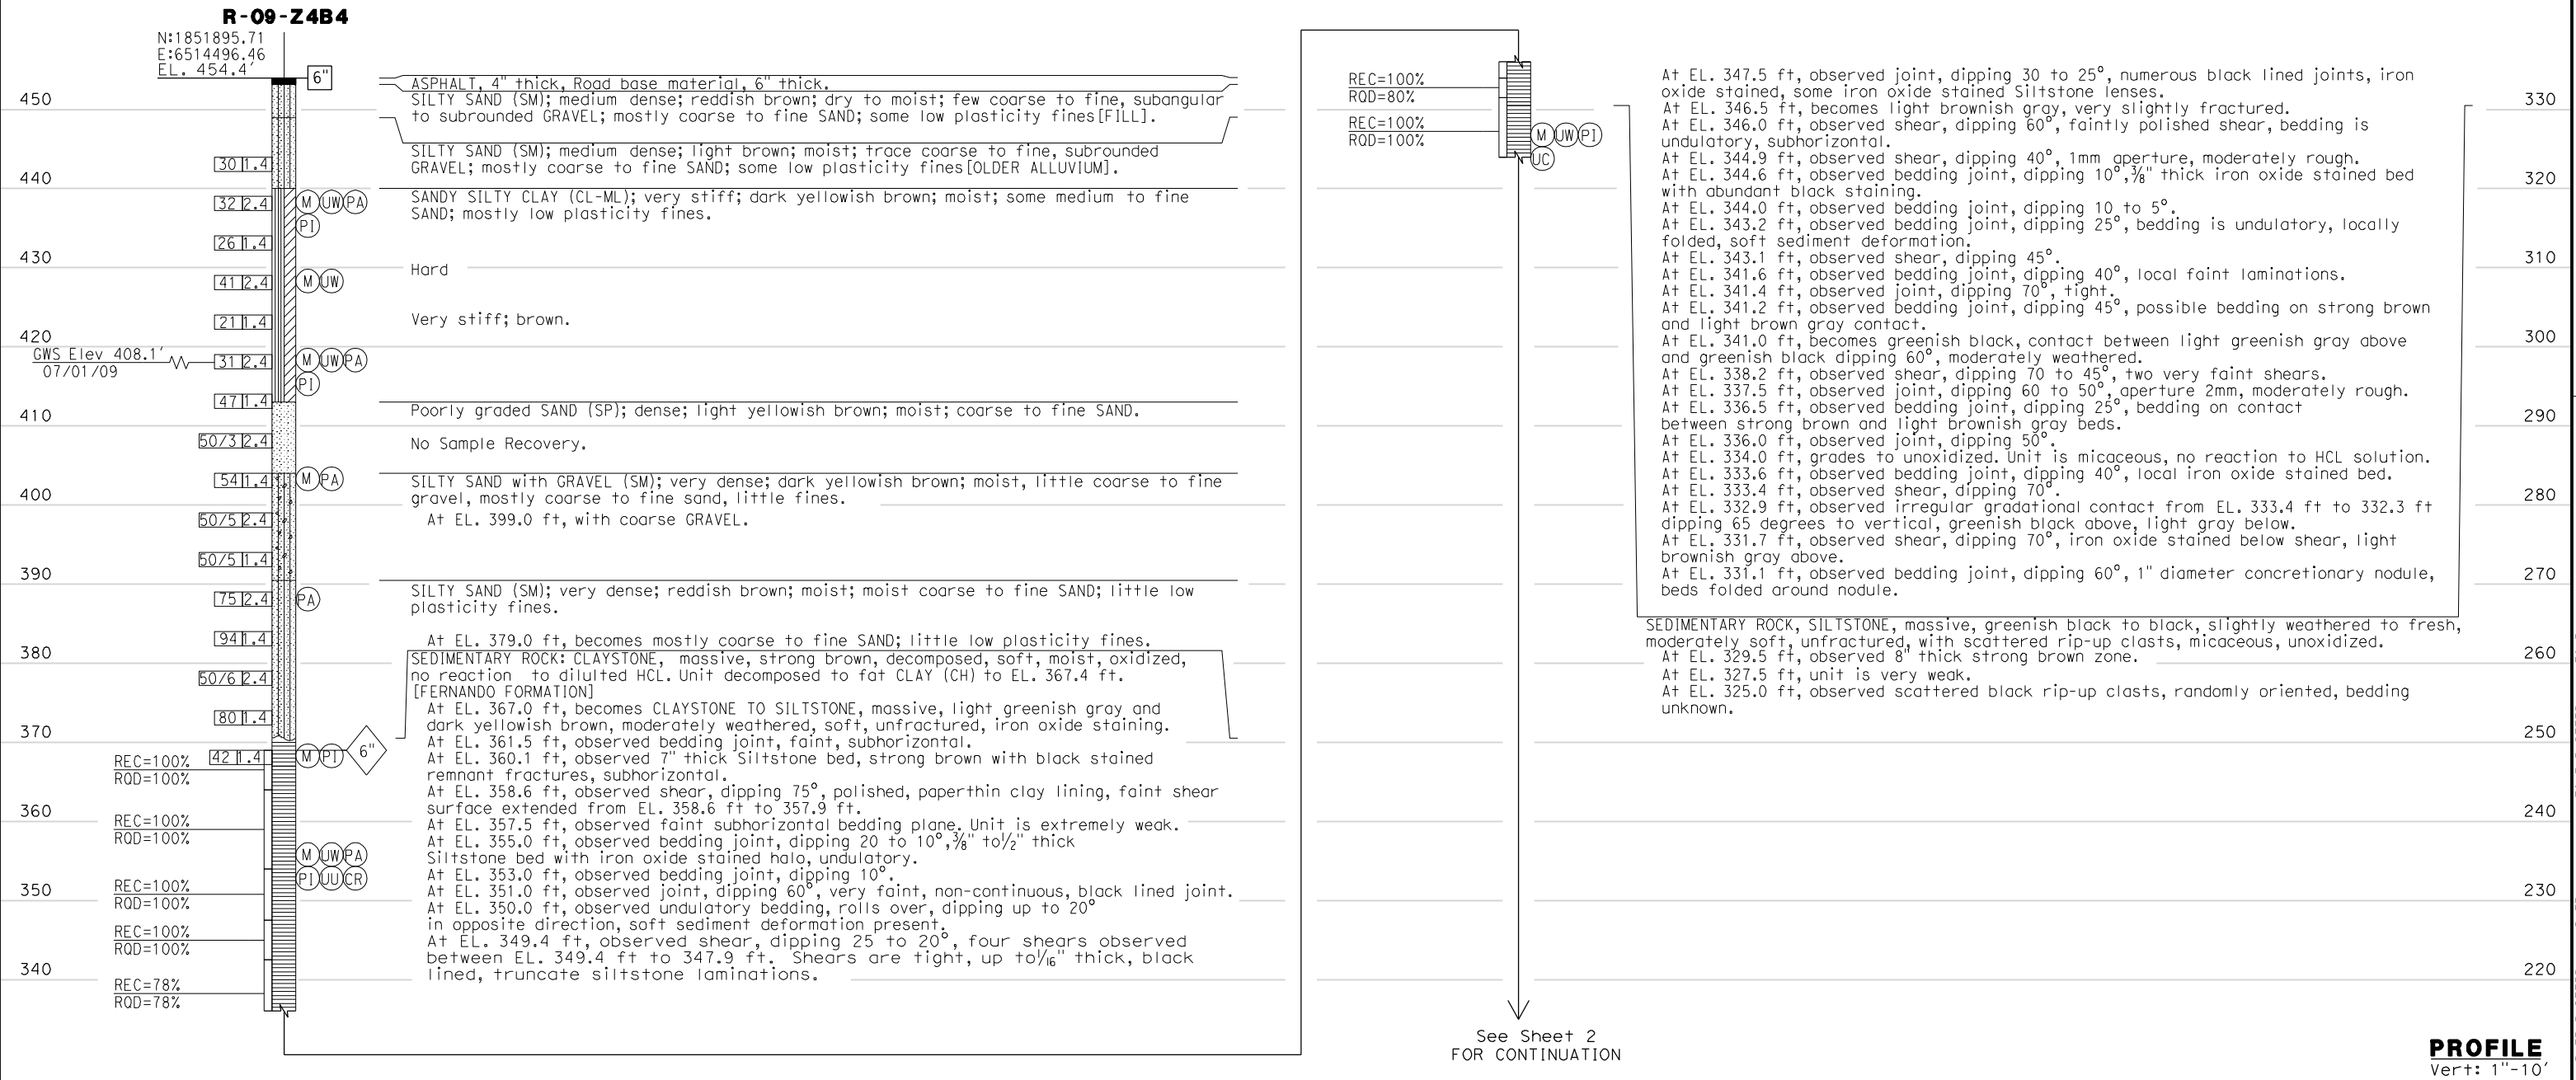 R-09-Z4B4
N:1851895.71
E:6514496.46
EL. 454.4'
6"
450
440
430
420
410
400
390
380
370
360
350
340
30 1.4
32 2.4
26 1.4
41 2.4
21 1.4
GWS Elev 408.1'
07/01/09
31 2.4
47 1.4
50/3 2.4
54 1.4
50/5 2.4
50/5 1.4
75 2.4
94 1.4
50/6 2.4
80 1.4
42 1.4
M UW PA
PI
M UW
M UW PA
PI
M PA
PA
M PI
6"
M UW PA
PI UU CR
REC=100%
RQD=100%
REC=100%
RQD=100%
REC=100%
RQD=100%
REC=100%
RQD=100%
REC=78%
RQD=78%
ASPHALT, 4" thick, Road base material, 6" thick.
SILTY SAND (SM); medium dense; reddish brown; dry to moist; few coarse to fine, subangular
to subrounded GRAVEL; mostly coarse to fine SAND; some low plasticity fines[FILL].
SILTY SAND (SM); medium dense; light brown; moist; trace coarse to fine, subrounded
GRAVEL; mostly coarse to fine SAND; some low plasticity fines[OLDER ALLUVIUM].
SANDY SILTY CLAY (CL-ML); very stiff; dark yellowish brown; moist; some medium to fine
SAND; mostly low plasticity fines.
Hard
Very stiff; brown.
Poorly graded SAND (SP); dense; light yellowish brown; moist; coarse to fine SAND.
No Sample Recovery.
SILTY SAND with GRAVEL (SM); very dense; dark yellowish brown; moist, little coarse to fine
gravel, mostly coarse to fine sand, little fines.
At EL. 399.0 ft, with coarse GRAVEL.
SILTY SAND (SM); very dense; reddish brown; moist; moist coarse to fine SAND; little low
plasticity fines.
At EL. 379.0 ft, becomes mostly coarse to fine SAND; little low plasticity fines.
SEDIMENTARY ROCK: CLAYSTONE, massive, strong brown, decomposed, soft, moist, oxidized,
no reaction to dilulted HCL. Unit decomposed to fat CLAY (CH) to EL. 367.4 ft.
[FERNANDO FORMATION]
At EL. 367.0 ft, becomes CLAYSTONE TO SILTSTONE, massive, light greenish gray and
dark yellowish brown, moderately weathered, soft, unfractured, iron oxide staining.
At EL. 361.5 ft, observed bedding joint, faint, subhorizontal.
At EL. 360.1 ft, observed 7" thick Siltstone bed, strong brown with black stained
remnant fractures, subhorizontal.
At EL. 358.6 ft, observed shear, dipping 75°, polished, paperthin clay lining, faint shear
surface extended from EL. 358.6 ft to 357.9 ft.
At EL. 357.5 ft, observed faint subhorizontal bedding plane. Unit is extremely weak.
At EL. 355.0 ft, observed bedding joint, dipping 20 to 10°,3/8" to1/2" thick
Siltstone bed with iron oxide stained halo, undulatory.
At EL. 353.0 ft, observed bedding joint, dipping 10°.
At EL. 351.0 ft, observed joint, dipping 60°, very faint, non-continuous, black lined joint.
At EL. 350.0 ft, observed undulatory bedding, rolls over, dipping up to 20°
in opposite direction, soft sediment deformation present.
At EL. 349.4 ft, observed shear, dipping 25 to 20°, four shears observed
between EL. 349.4 ft to 347.9 ft. Shears are tight, up to1/16" thick, black
lined, truncate siltstone laminations.
REC=100%
RQD=80%
REC=100%
RQD=100%
M UW PI
UC
See Sheet 2
FOR CONTINUATION
At EL. 347.5 ft, observed joint, dipping 30 to 25°, numerous black lined joints, iron
oxide stained, some iron oxide stained Siltstone lenses.
At EL. 346.5 ft, becomes light brownish gray, very slightly fractured.
At EL. 346.0 ft, observed shear, dipping 60°, faintly polished shear, bedding is
undulatory, subhorizontal.
At EL. 344.9 ft, observed shear, dipping 40°, 1mm aperture, moderately rough.
At EL. 344.6 ft, observed bedding joint, dipping 10°,3/8" thick iron oxide stained bed
with abundant black staining.
At EL. 344.0 ft, observed bedding joint, dipping 10 to 5°.
At EL. 343.2 ft, observed bedding joint, dipping 25°, bedding is undulatory, locally
folded, soft sediment deformation.
At EL. 343.1 ft, observed shear, dipping 45°.
At EL. 341.6 ft, observed bedding joint, dipping 40°, local faint laminations.
At EL. 341.4 ft, observed joint, dipping 70°, tight.
At EL. 341.2 ft, observed bedding joint, dipping 45°, possible bedding on strong brown
and light brown gray contact.
At EL. 341.0 ft, becomes greenish black, contact between light greenish gray above
and greenish black dipping 60°, moderately weathered.
At EL. 338.2 ft, observed shear, dipping 70 to 45°, two very faint shears.
At EL. 337.5 ft, observed joint, dipping 60 to 50°, aperture 2mm, moderately rough.
At EL. 336.5 ft, observed bedding joint, dipping 25°, bedding on contact
between strong brown and light brownish gray beds.
At EL. 336.0 ft, observed joint, dipping 50°.
At EL. 334.0 ft, grades to unoxidized. Unit is micaceous, no reaction to HCL solution.
At EL. 333.6 ft, observed bedding joint, dipping 40°, local iron oxide stained bed.
At EL. 333.4 ft, observed shear, dipping 70°.
At EL. 332.9 ft, observed irregular gradational contact from EL. 333.4 ft to 332.3 ft
dipping 65 degrees to vertical, greenish black above, light gray below.
At EL. 331.7 ft, observed shear, dipping 70°, iron oxide stained below shear, light
brownish gray above.
At EL. 331.1 ft, observed bedding joint, dipping 60°, 1" diameter concretionary nodule,
beds folded around nodule.
SEDIMENTARY ROCK, SILTSTONE, massive, greenish black to black, slightly weathered to fresh,
moderately soft, unfractured, with scattered rip-up clasts, micaceous, unoxidized.
At EL. 329.5 ft, observed 8" thick strong brown zone.
At EL. 327.5 ft, unit is very weak.
At EL. 325.0 ft, observed scattered black rip-up clasts, randomly oriented, bedding
unknown.
330
320
310
300
290
280
270
260
250
240
230
220
PROFILE
Vert: 1"-10'